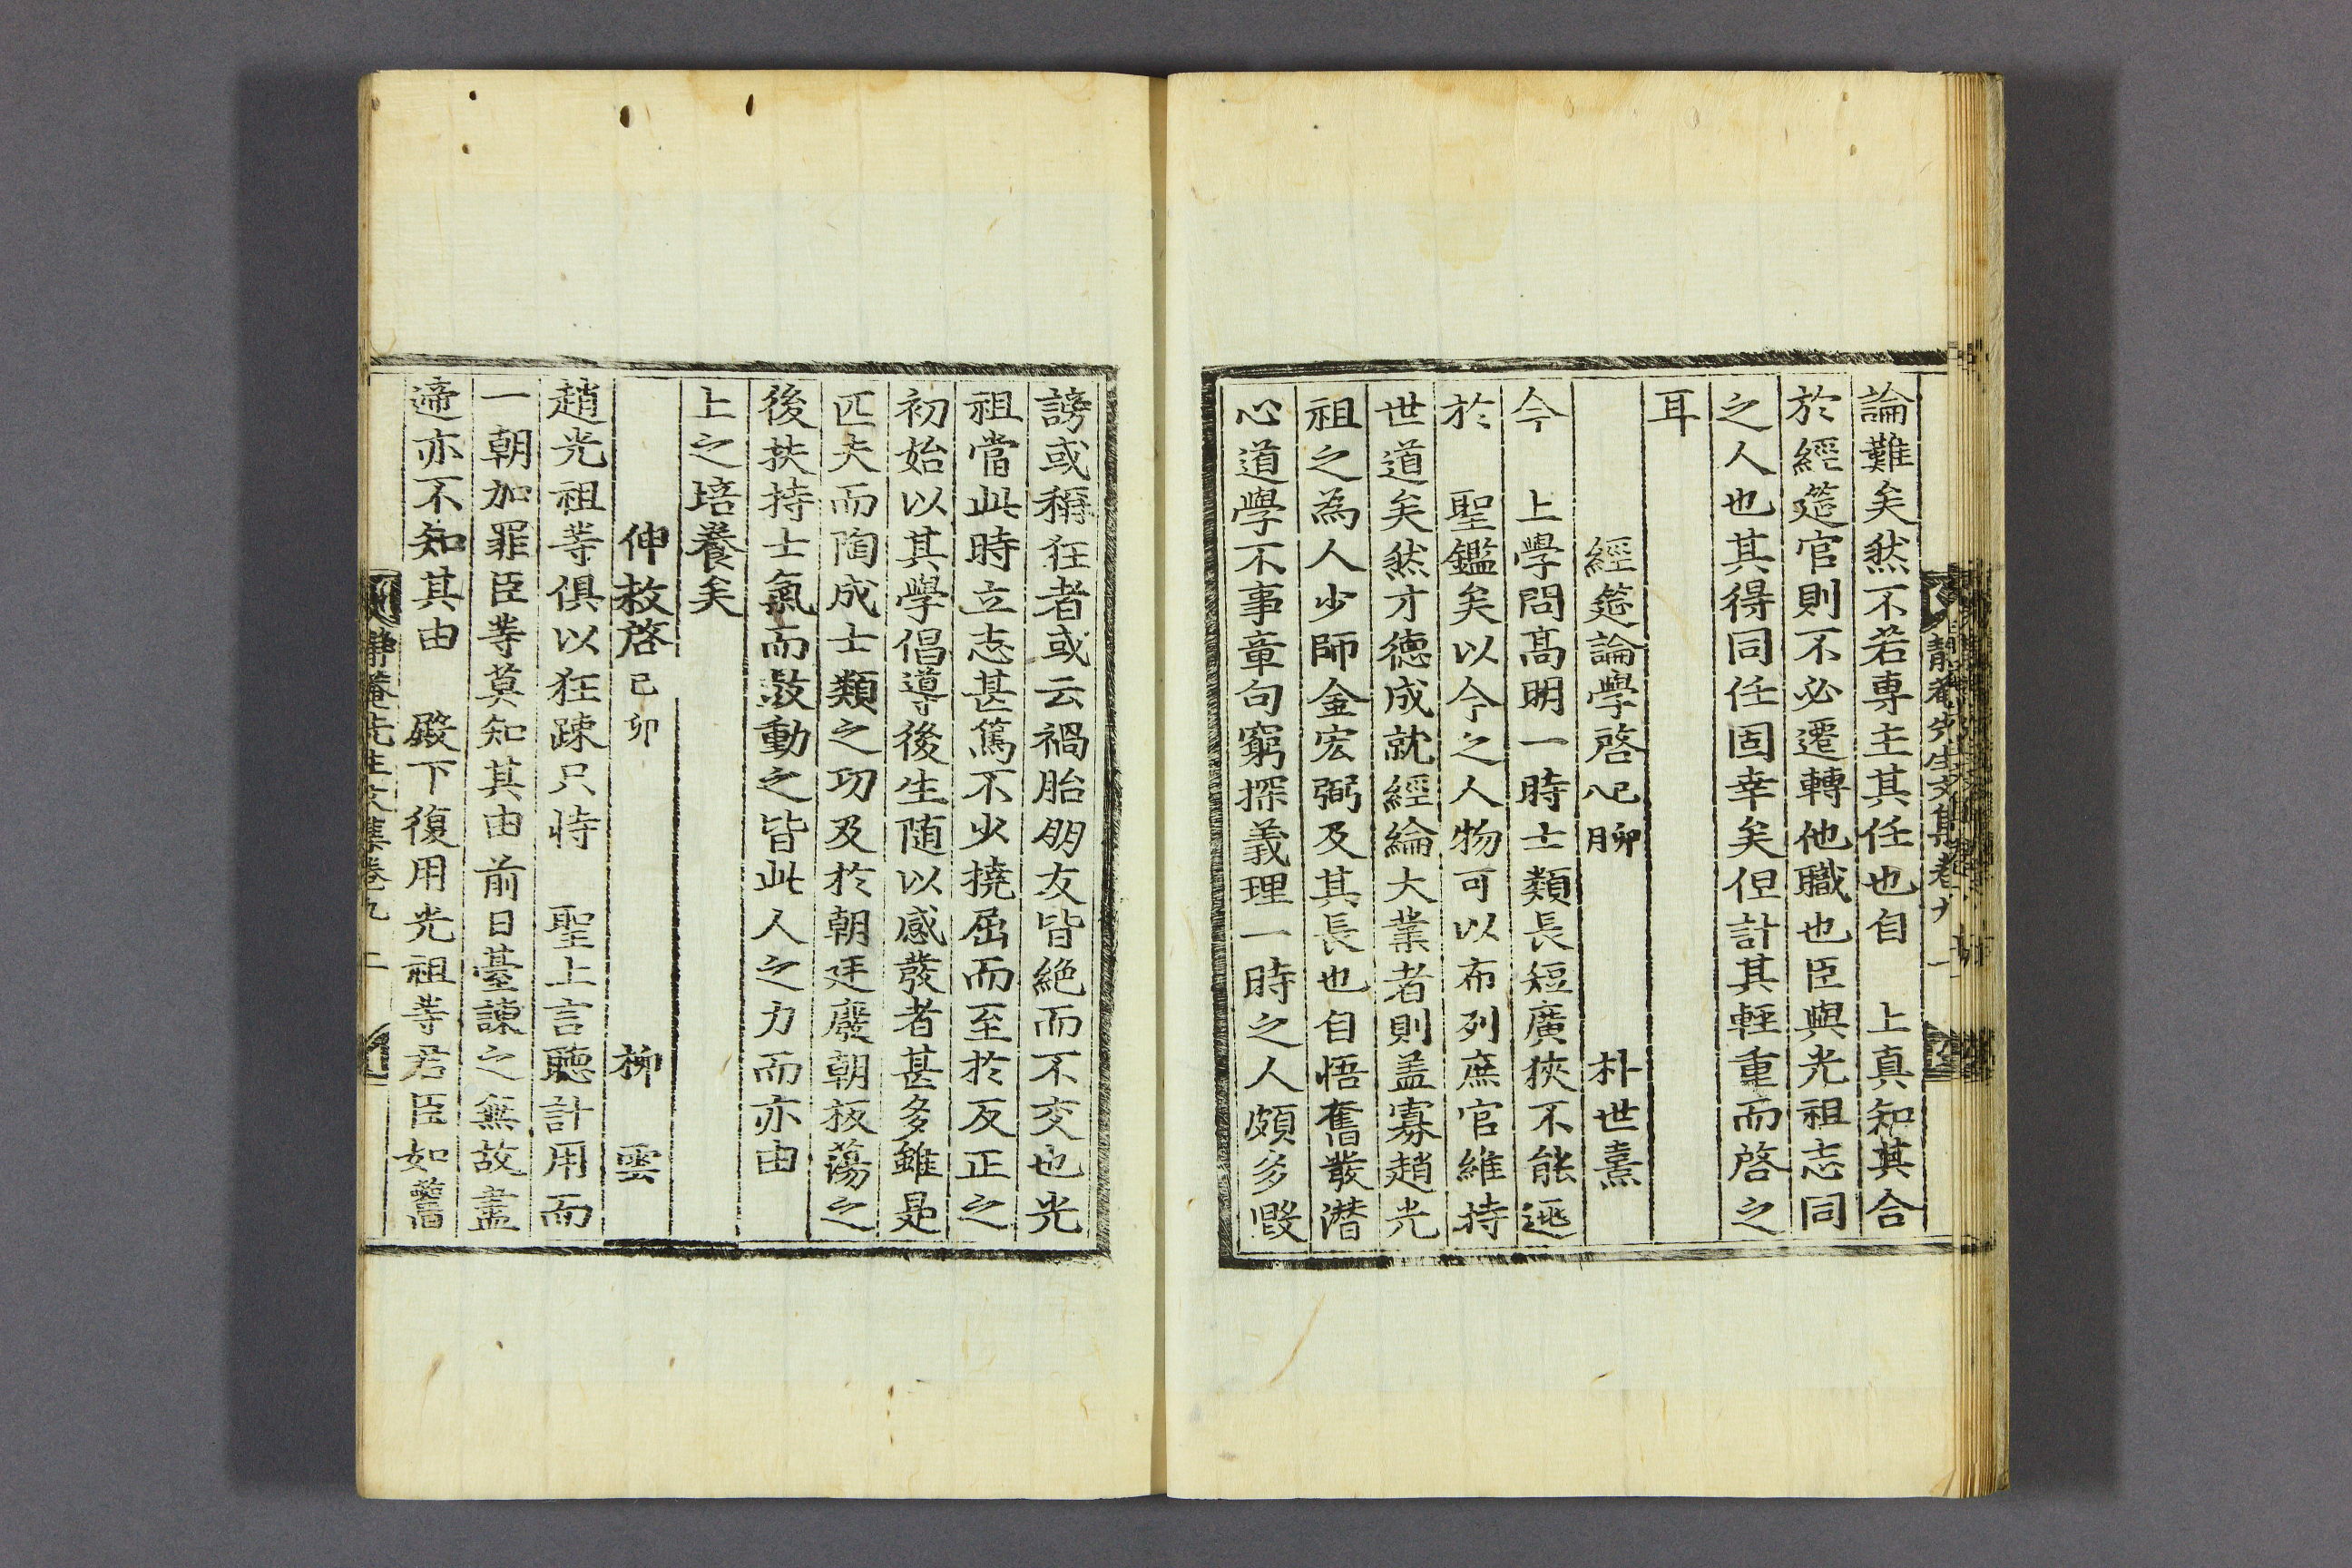 論難矣然不若專主其任也自 上真知其合
於經筵官則不必遷轉他職也臣與光祖志同
之人也其得同任固幸矣但計其輕重而啓之
耳
經筵論學啓 朴世熹
今 上學問高明一時士類長短廣狹不能逃
於 聖鑑矣以今之人物可以布列庶官維持
世道矣然才德成就經綸大業者則盖寡趙光
祖之為人少師金宏弼及其長也自悟奮發潜
心道學不事章句窮探義理一時之人頗多毀
謗或稱狂者或云禍胎朋友皆絶而不交也光
祖當此時立志甚篤不少撓屈而至於反正之
初始以其學倡導後生随以感發者甚多雖是
匹夫而陶成士類之功及於朝廷廢朝板蕩之
後扶持士氣而鼓動之皆此人之力而亦由
上之培養矣
伸救啓 己卯 柳 雲
趙光祖等俱以狂踈只恃 聖上言聽計用而
一朝加罪臣等莫知其由前日臺諫之無故盡
遆亦不知其由 殿下復用光祖等君臣如舊
靜菴先生文集卷九 二